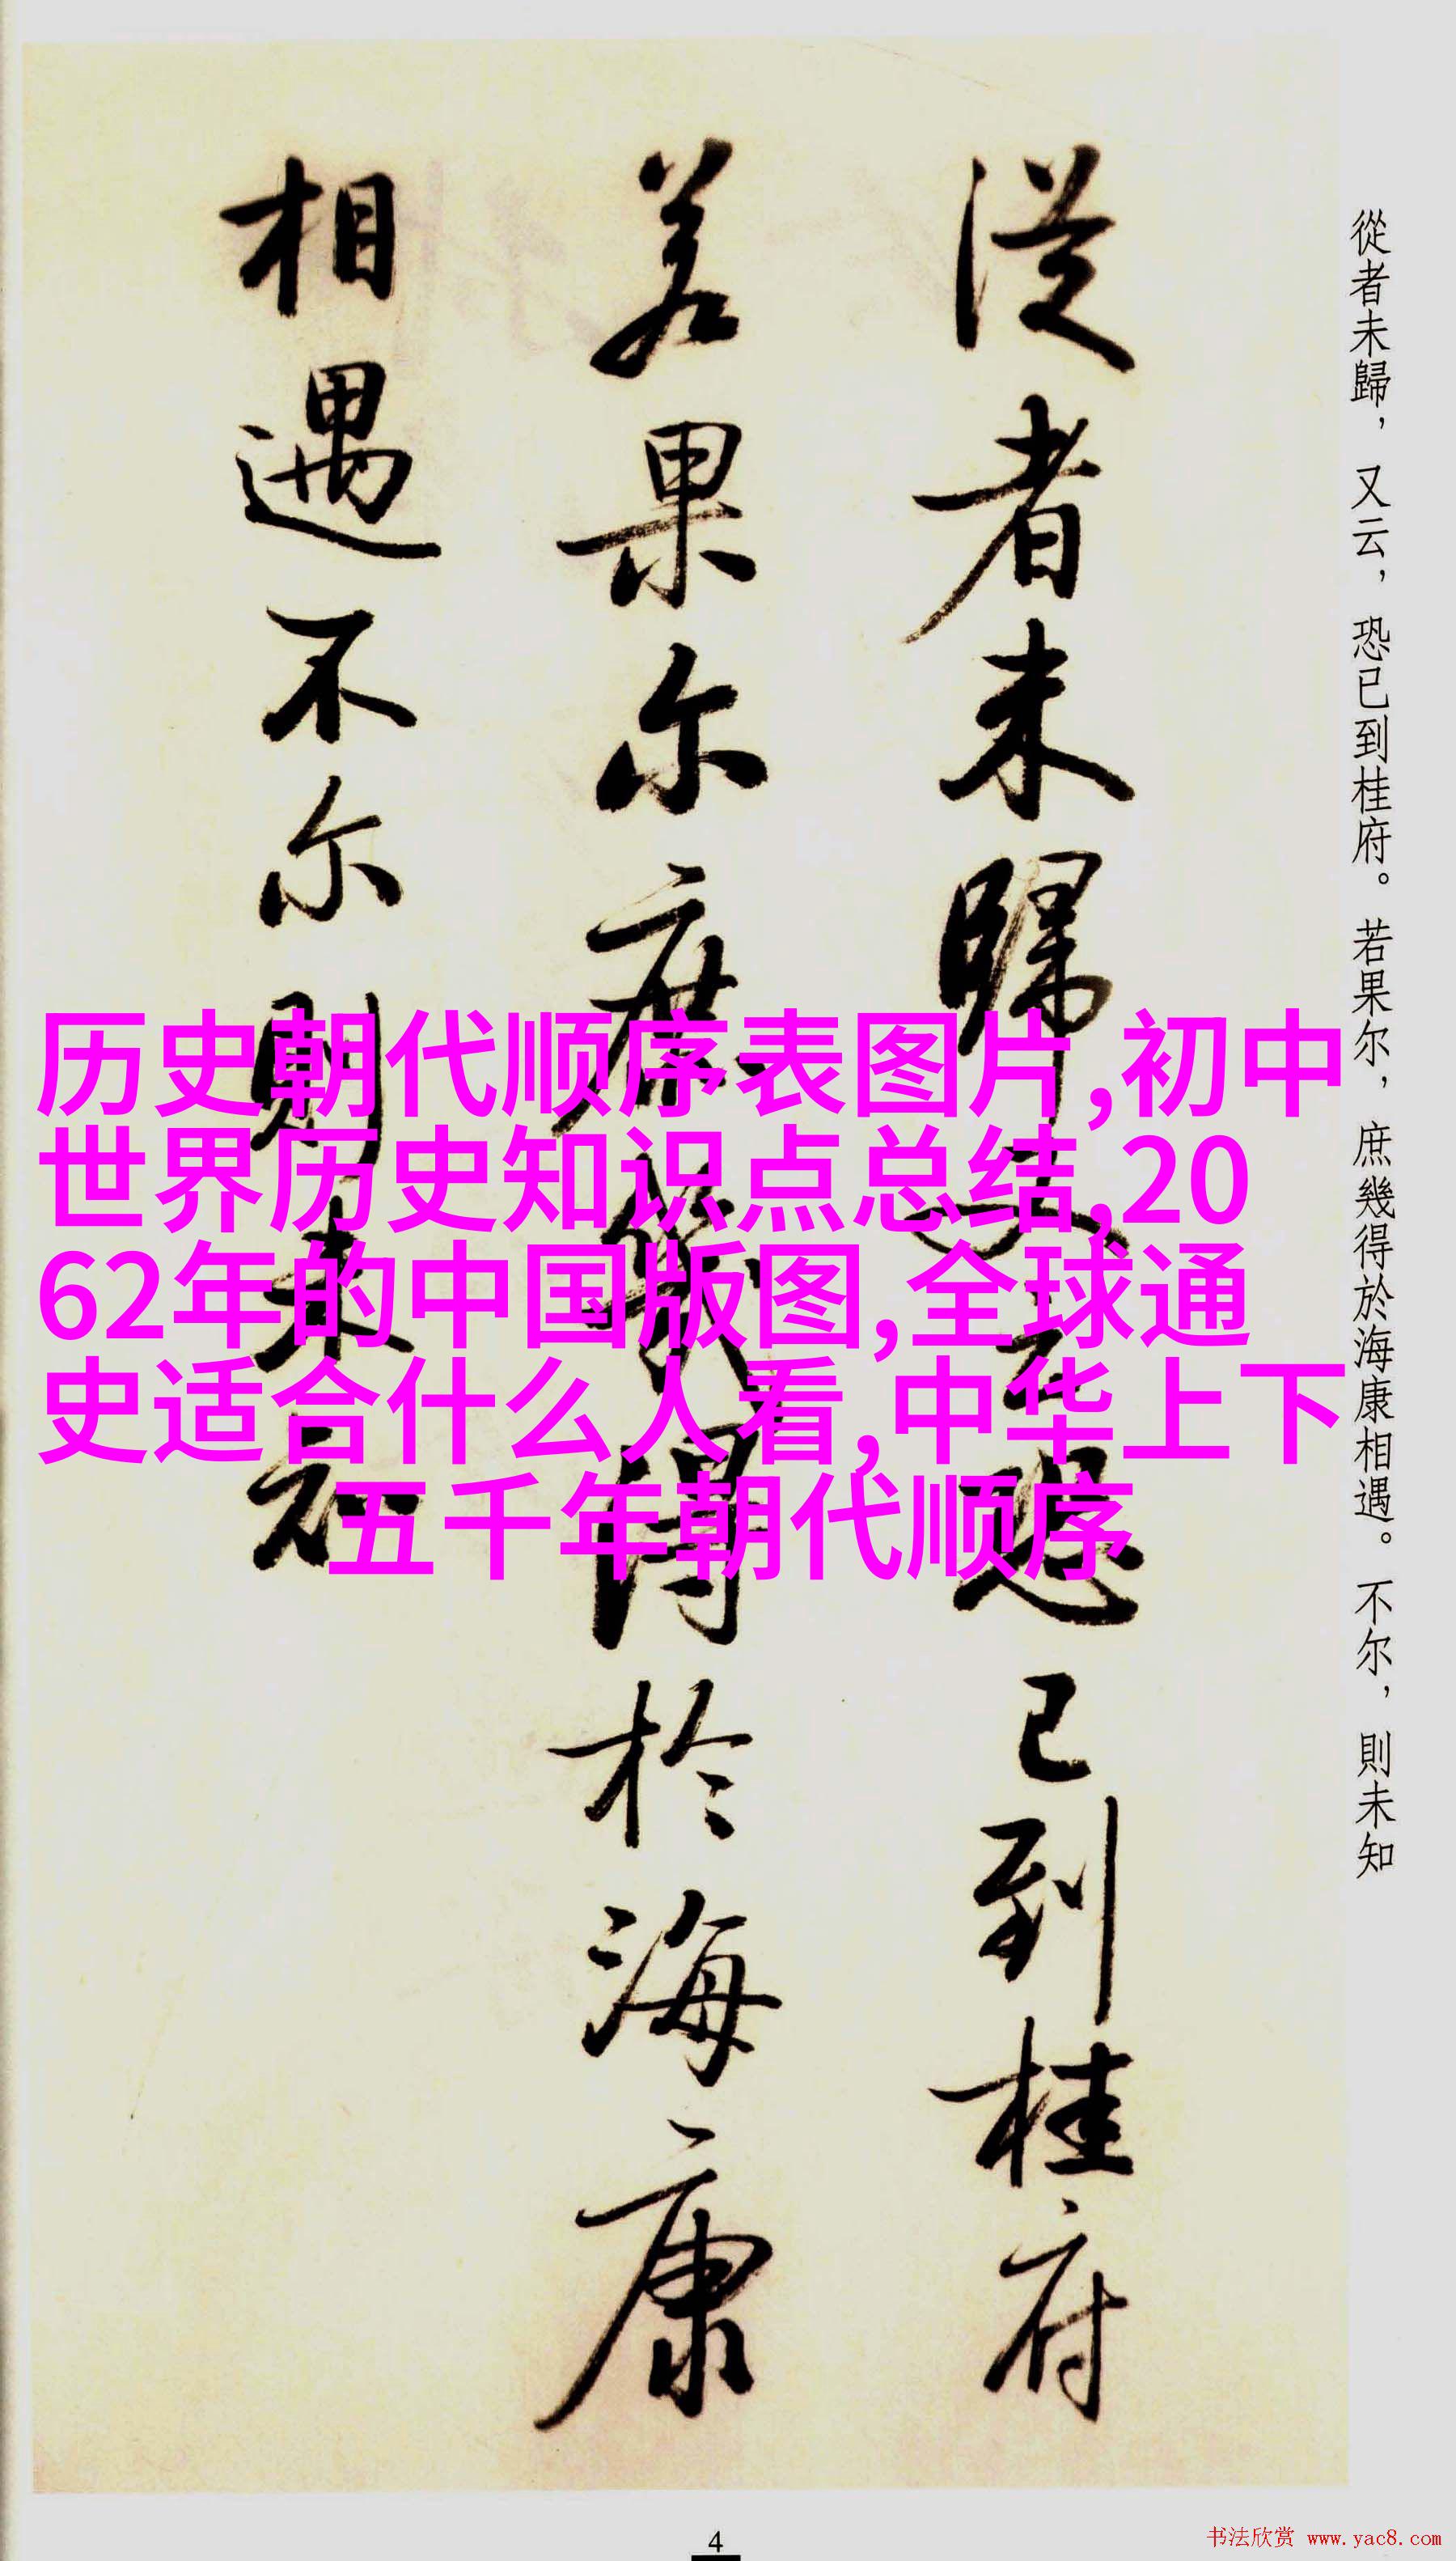 從者未歸，又云，恐已到桂府。若果尔，庶幾得於海康相遇。不尔，則未知
从者未歸又云恐已到桂府
若果尔庶幾得於海康
相遇不尔則未知
历史朝代顺序表图片,初中
世界历史知识点总结,20
62年的中国版图,全球通
史适合什么人看,中华上下
五千年朝代顺序
4
书法欣赏 www.yac8.com